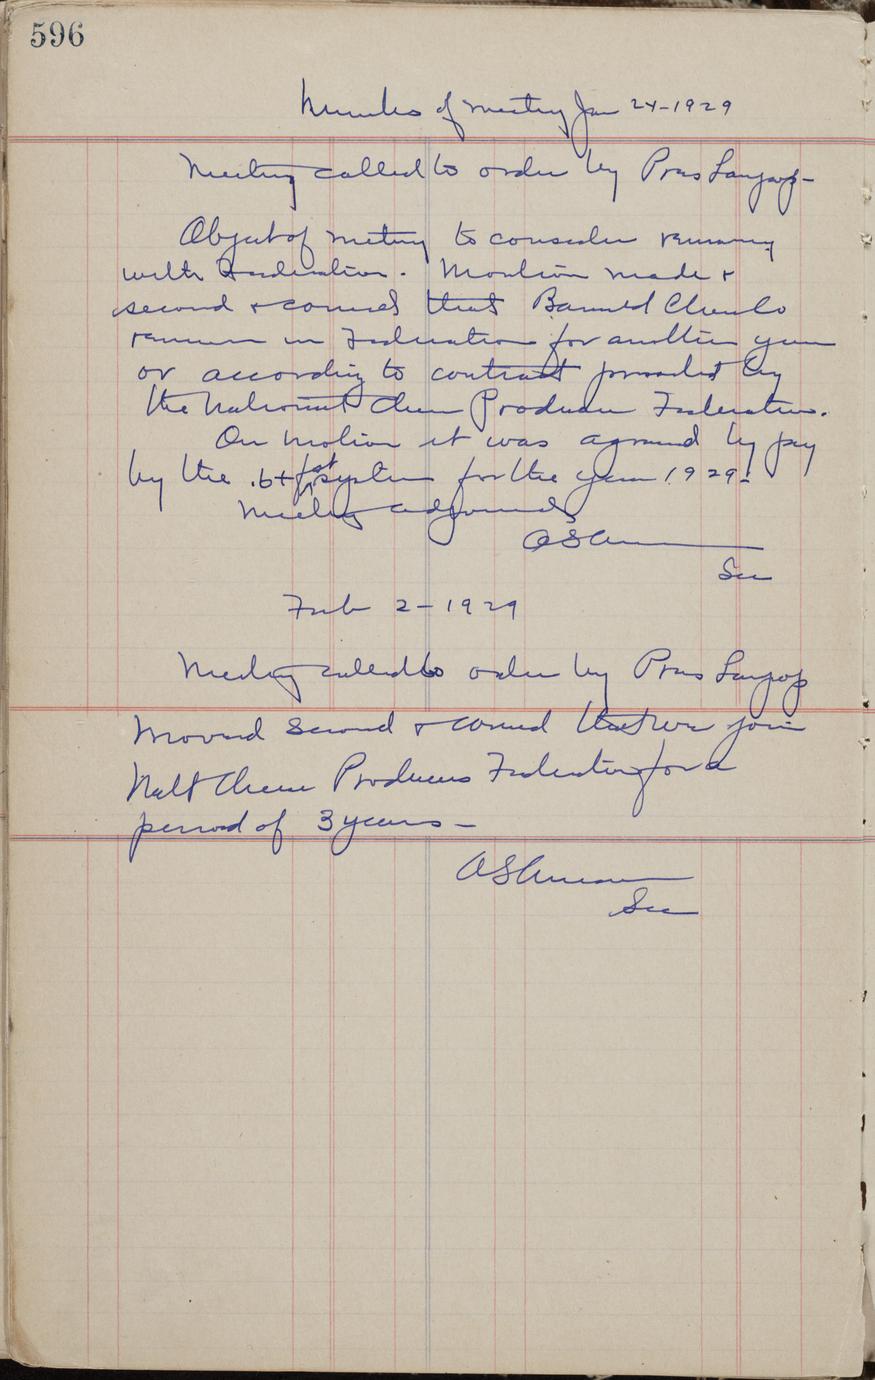 596
Minutes of meeting Jan 24-1929
Meeting called to order by Pres
Object of meeting to consider
with Federation. Motion made +
second + carried that Cheese Co
remain in Federation for another year
or according to contract presented by
the National Cheese Producers Federation.
On motion it was agreed by pay
by the .6+fat system for the year 1929.
Meeting adjourned
Sec
Feb 2-1929
Meeting called to order by Pres
Moved second + carried that we join
Natl Cheese Producers Federation for a
period of 3 years -
Sec